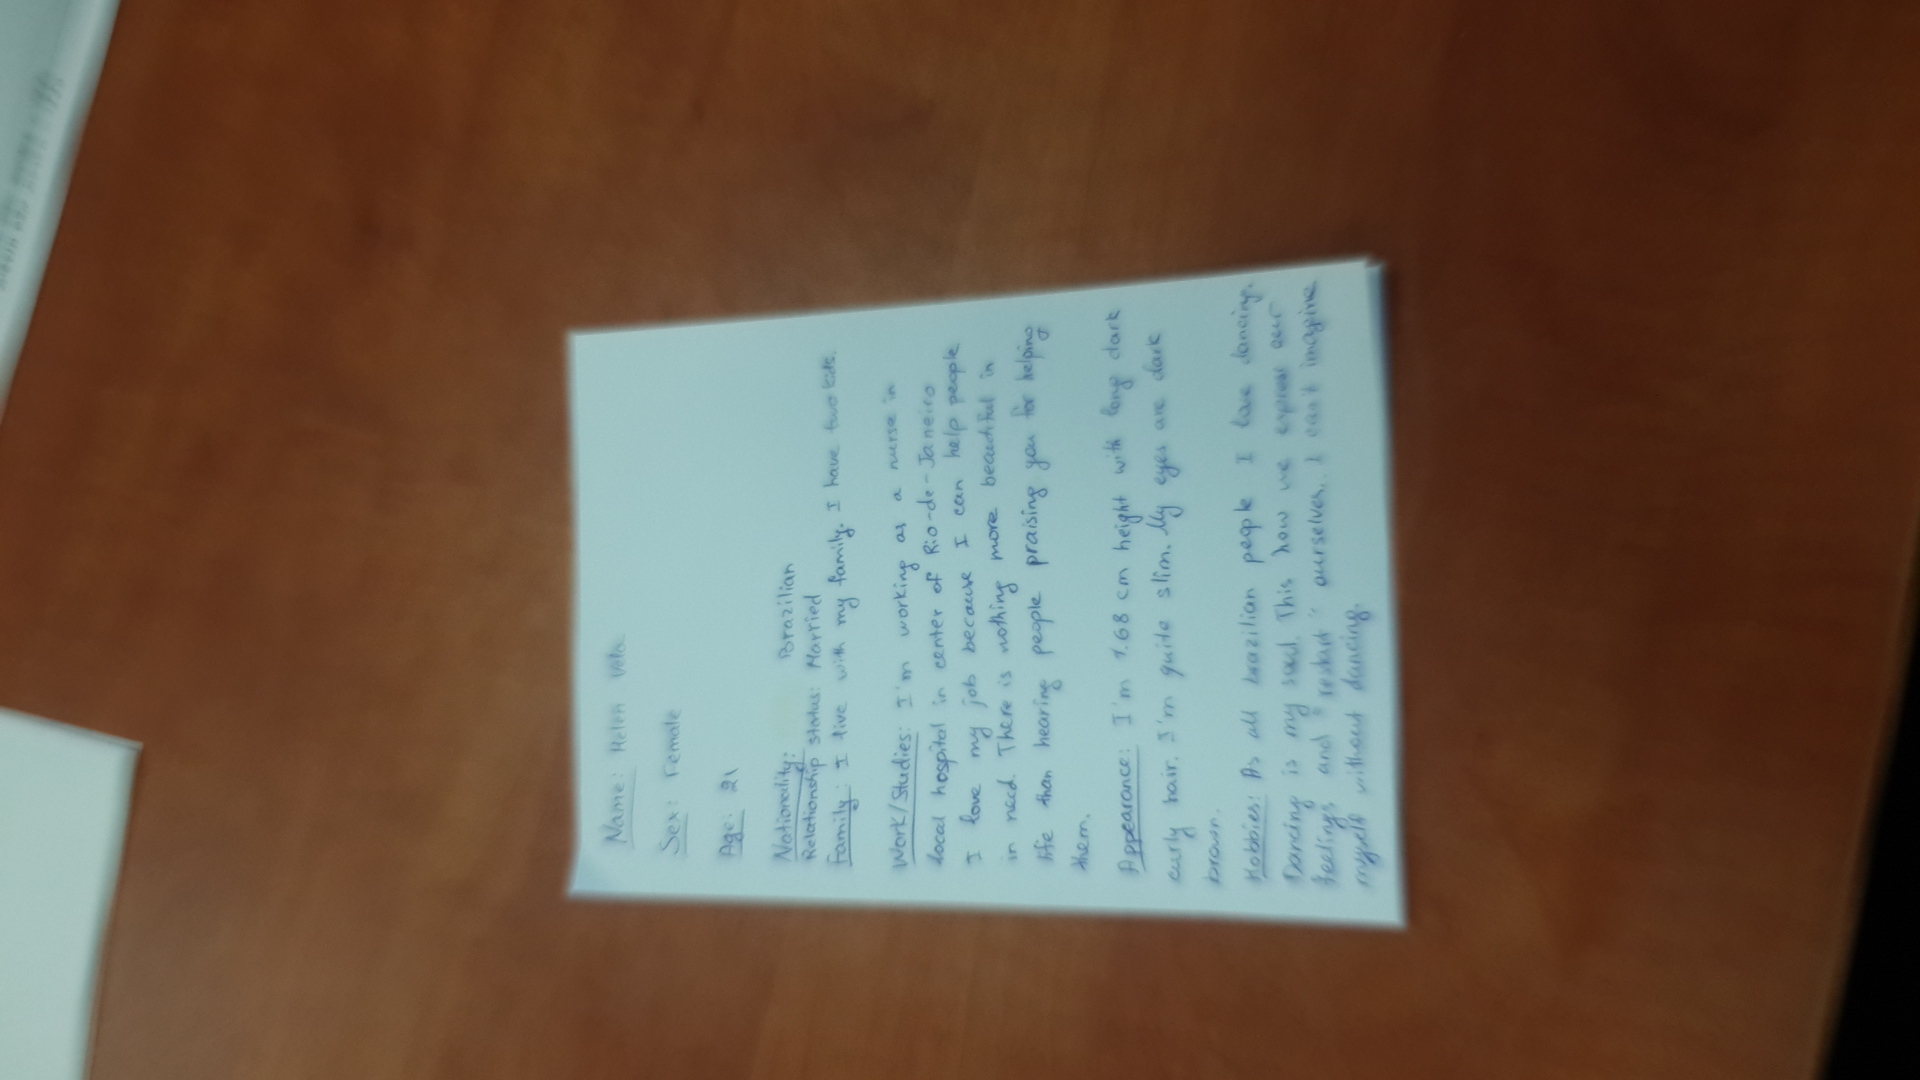 Name: Helen
Sex: Female
Age: 21
Nationality: Brazilian
Relationship status: Married
Family: I live with my family. I have two kids.
Work/Studies: I'm working as a nurse in
local hospital in center of Rio-de-Janeiro
I love my job because I can help people
in need. There is nothing more beautiful in
life than hearing people praising you for helping
them.
Appearance: I'm 1.68 cm height with long dark
curly hair. I'm quite slim. My eyes are dark
brown.
Hobbies: As all brazilian people I love dancing.
Dancing is my soul. This how we express our
feelings and ourselves. I can't imagine
myself without dancing.